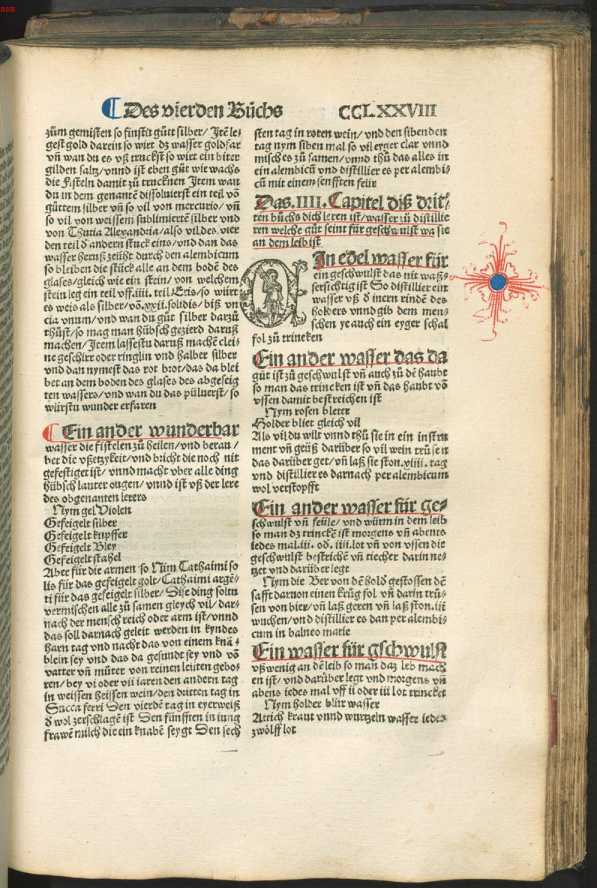 Des vierden Bůchs CCLXXVIII
zům gemisten so finstu gůtt silber/ Itē le-
gest gold darein so wirt dz wasser goldfar
vn̄ wan du es vß truckst so wirt ein biter
gilden saltz/vnnd ist eben gůt wie wachs
die Fisteln damit zů trucknen Item wan
du in dem genantē dissoluierst ein teil vō
gůttem silber vn̄ so vil von mercurio/ vn̄
so vil von weissem sublimiertē silber vnd
von Thucia Alexandria/also vil des vier
den teil d̄ andern stuck eins/vnd dan das
wasser herußzeüht durch den alembicum
so bleiben die stück alle an dem bodē des
glases/gleich wie ein stein/ von welchem
stein leg ein teil vff .iiii. teil Eris/so würt
es weis als silber/vn̄ .xvi. solidis/ biß vn
cia vnum/vnd wan du gůt silber darzů
thůst/so mag man hübsch gezierd daruß
machen/Item lassestu daruß machē clei-
ne geschirr oder ringlin vnd halber silber
vnd dan nymest das rot brot/das da blei
bet an dem boden des glases des abgeseig
ten wassers/vnd wan du das pülverst/ so
würstu wunder erfaren
Ein ander wunderbar
wasser die fistelen zů heilen/vnd beran/
ber die vßetzykeit/vnd bricht die noch nit
gefestiget ist/ vnnd macht vber alle ding
hübsch lauter ougen/vnnd ist vß der lere
des obgenanten lerers
Nym gel Violen
Gefeigelt silber
Gefeigelt kupffer
Gefeigelt Bley
Gefeigelt stahel
Aber für die armen so Nim Cathaimi so
lis für das gefeigelt golt/Cathaimi argē-
ti für das gefeigelt silber/Dise ding soltu
vermischen alle zů samen gleych vil/dar-
nach der mensch reich oder arm ist/vnnd
das soll darnach geleit werden in kyndes
harn tag vnd nacht das von einem knä-
blein sey vnd das da gesundt sey vnd vō
vatter vn̄ můter von reinen leüten gebo-
ren/bey vi oder vii iaren den andern tag
in weissen heissen wein/den dritten tag in
Succa feni Den vierdē tag in eyerweiß
d̄ wol zerschlagē ist Den fünfften in iung
frawē milch die ein knabē seygt Den sech
sten tag in roten wein/vnd den sibenden
tag nym siben mal so vil eyger clar vnnd
misch es zů samen/vnnd thů das alles in
ein alembicū vnd distillier es per alembi-
cū mit einem senfften feür
Das .IIII. Capitel diß drit-
ten bůchs dich leren ist/wasser zů distillie
ren welche gůt seint für geschwulst wa sie
an dem leib ist
In edel wasser für
ein geschwulst das nit waß-
sersichtig ist So distillier ein
wasser vß d̄ inern rindē des
holders vnnd gib dem men-
schen ye auch ein eyger schal
fol zů trincken
Ein ander wasser das da
gůt ist zů geschwulst vn̄ auch zů dē haubt
so man das trincken ist vn̄ das haubt vō
vssen damit bestreichen ist
Nym rosen bletter
Holder blüt gleich vil
Als vil du wilt vnnd thů sie in ein instru
ment vn̄ geüß darüber so vil wein trůsen
das darüber get/vn̄ laß sie ston .viiii. tag
vnd distillier es darnach per alembicum
wol verstopfft
Ein ander wasser für ge-
schwulst vn̄ feüle/vnd würm in dem leib
so man dz trinckē ist morgens vn̄ abents
iedes mal .iii. od̄. iiii. lot vn̄ von vssen die
geschwulst bestrichē vn̄ tiecher darin ne-
tzet vnd darüber legt
Nym die Ber von dē Hold̄ gestossen dē
safft darvon einen krůg fol vn̄ darin trů-
sen von bier/vn̄ laß geren vn̄ laß ston .iii
wuchen/vnd distillier es dan per alembi-
cum in balneo marie
Ein wasser für gschwulst
vß wenig an dē leib so man daz leb mach
en ist/vnd darüber legt vnd morgens vn̄
abens iedes mal vff ii oder iii lot trincket
Nym holder blür wasser
Attich kraut vnnd wurtzeln wasser iedes
zwölff lot